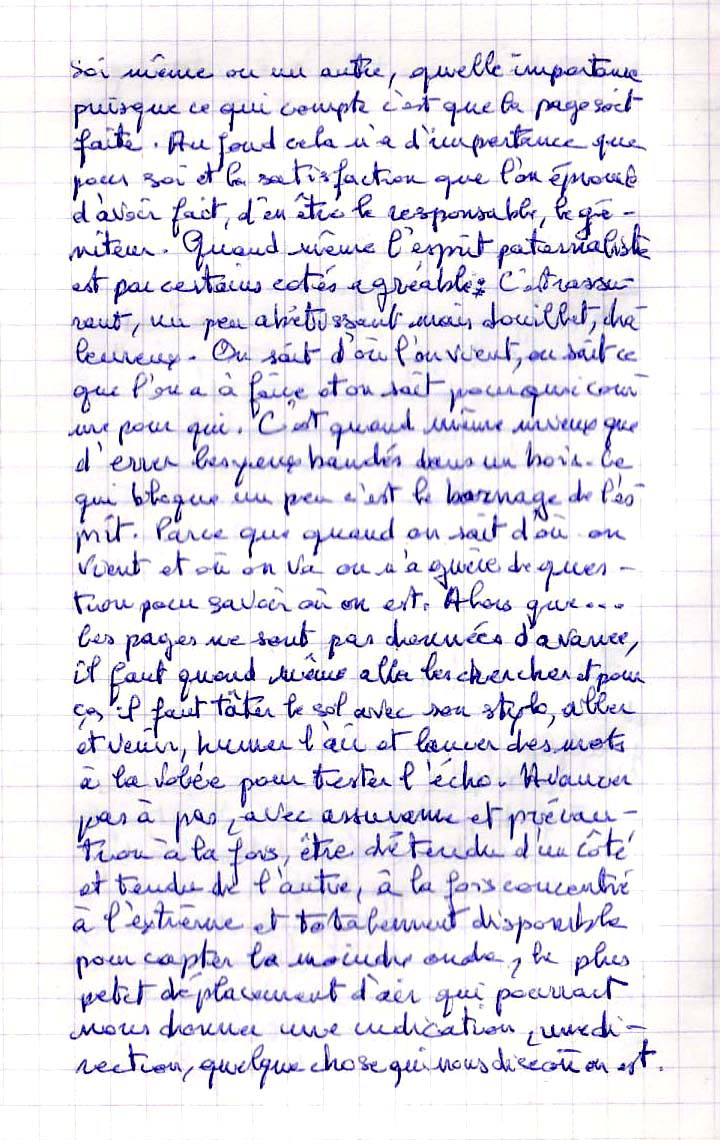 soi même ou un autre, quelle importance
puisque ce qui compte c'est que la page soit
faite. Au fond cela n'a d'importance que
pour soi et la satisfaction que l'on éprouve
d'avoir fait, d'en être le responsable, le gé-
niteur. Quand même l'esprit paternaliste
est par certains cotés agréable; C'est rassu-
rant, un peu abêtissant mais douillet, cha
leureux. On sait d'où l'on vient, on sait ce
que l'on a à faire et on sait pour qui com
me pour qui. C'est quand même mieux que
d'errer les yeux bandés dans un bois. Ce
qui bloque un peu c'est le bornage de l'es
prit. Parce que quand on sait d'où on
vient et où on va on n'a guère de ques-
tion pour savoir où on est. Alors que...
Les pages ne sont pas données d'avance,
il faut quand même aller les chercher et pour
ça il faut tâter le sol avec son stylo, aller
et venir, humer l'air et lancer des mots
à la volée pour tester l'écho. Avancer
pas à pas, avec assurance et précau-
tion à la fois, être détendu d'un côté
et tendu de l'autre, à la fois concentré
à l'extrême et totalement disponible
pour capter la moindre onde, le plus
petit déplacement d'air qui pourrait
nous donner une indication, une di-
rection, quelque chose qui nous dise où on est.